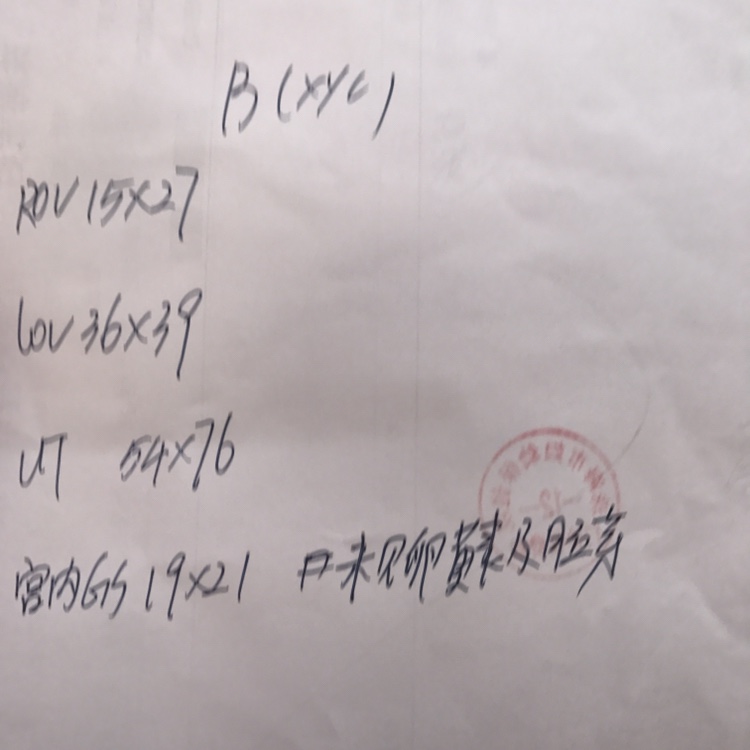 B(XYC)
ROV 15X27
LOV 36X39
UT 54X76
宫内GS 19X21 内未见卵黄囊及胚芽